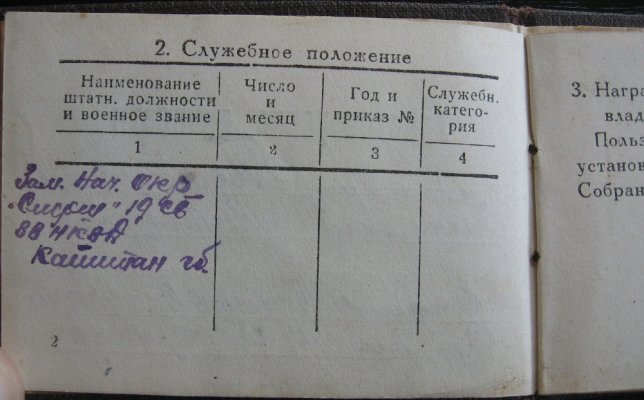 2. Служебное положение
Наименование
штатн. должности
и военное звание
Число
и
месяц
Год и
приказ №
Служебн.
катего-
рия
1
2
3
4
Зам. Нач. Окр
"Смерш" 19 сб
ВВ НКВД
Капитан гб.
2
3. Награ
влад
Польз
установ
Собран